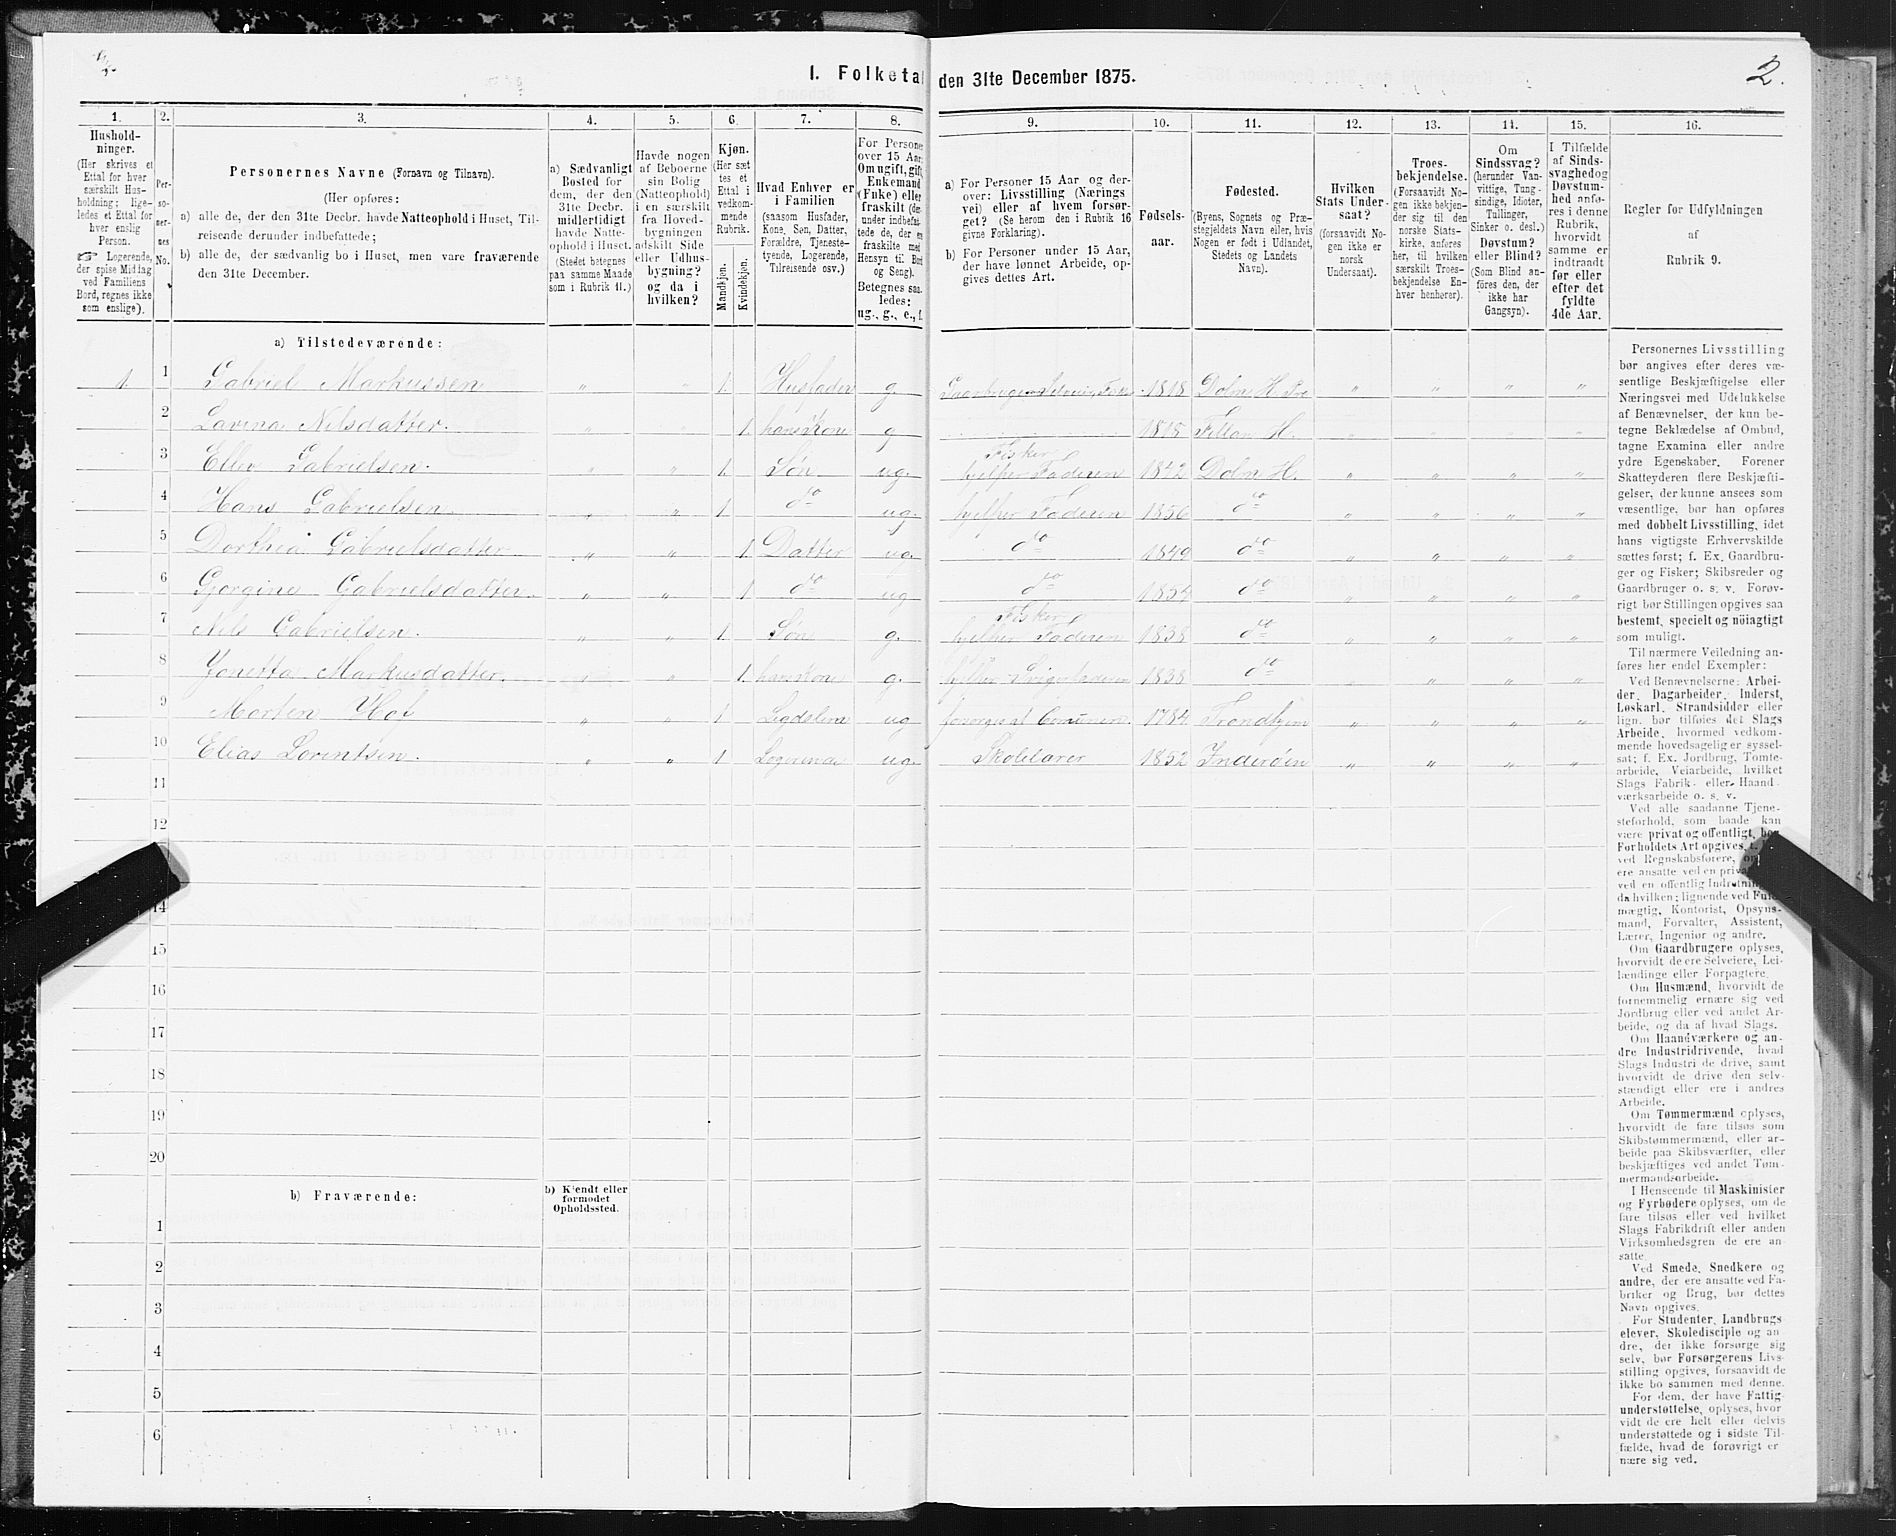 I. Folketa den 31te December 1875.
2.
1. 2. 3. 4. 5. 6. 7. 8. 9. 10. 11. 12. 13. 14. 15. 16.
Hushold-
ninger.
(Her skrives et
Ettal for hver
særskilt Hus-
holdning; lige-
ledes et Ettal for
hver enslig
Person.
☞ Logerende,
der spise Middag
ved Familiens
Bord, regnes ikke
som enslige).
Per-
so-
ner-
nes
No.
Personernes Navne (Fornavn og Tilnavn).
(Her opføres:
a) alle de, der den 31te Decbr. havde Natteophold i Huset, Til-
reisende derunder indbefattede;
b) alle de, der sædvanlig bo i Huset, men vare fraværende
den 31te December.
a) Sædvanligt
Bosted for
dem, der den
31te Decbr.
midlertidigt
havde Natte-
ophold i Huset.
(Stedet betegnes
paa samme Maade
som i Rubrik 11.)
Havde nogen
af Beboerne
sin Bolig
(Natteophold)
i en særskilt
fra Hoved-
bygningen
adskilt Side
eller Udhus-
bygning?
og da i
hvilken?
Kjøn.
(Her sæt
tes et
Ettal i
vedkom-
mende
Rubrik.
Mandkjøn.
Kvindekjøn.
Hvad Enhver er
i Familien
(saasom Husfader,
Kone, Søn, Datter,
Forældre, Tjeneste-
tyende, Logerende,
Tilreisende osv.)
For Persone
over 15 Aar:
Om ugift, gift,
Enkemand
(Enke) eller
fraskilt (der-
under indbefat-
tede de, der er
fraskilte med
Hensyn til Bord
og Seng).
Betegnes saa-
ledes:
ug., g., e., f.
a) For Personer 15 Aar og der-
over: Livsstilling (Nærings
vei) eller af hvem forsør-
get? (Se herom den i Rubrik 16
givne Forklaring).
b) For Personer under 15 Aar,
der have lønnet Arbeide, op-
gives dettes Art.
Fødsels-
aar.
Fødested.
(Byens, Sognets og Præ-
stegjeldets Navn eller, hvis
Nogen er født i Udlandet,
Stedets og Landets
Navn).
Hvilken
Stats Under-
saat?
(forsaavidt No-
gen ikke er
norsk
Undersaat).
Troes-
bekjendelse.
(Forsaavidt No-
gen ikke bekjen-
der sig til den
norske Stats-
kirke, anføres
her, til hvilken
særskilt Troes-
bekjendelse En-
hver henhører).
Om
Sindssvag?
(herunder Van-
vittige, Tung-
sindige, Idioter,
Tullinger,
Sinker o. desl.)
Døvstum?
eller Blind?
(Som Blind an-
föres den, der
ikke har
Gangsyn).
I Tilfælde
af Sinds-
svaghed og
Døvstum-
hed anfø-
res i denne
Rubrik,
hvorvidt
samme er
indtraadt
før eller
efter det
fyldte
4de Aar.
Regler for Udfyldningen
af
Rubrik 9.
a) Tilstedeværende:
1. 1 Gabriel Markussen " " 1. Husfader g. Gaardbruger Selveier, Fisker 1818 Dolm H. Pre " " " "
2 Lavina Nilsdatter. " " 1. hans Kone g 1815 Fillan H. " " " "
3 Ellev Gabrielsen. " " 1. Søn ug. Fisker hjelper Faderen 1842 Dolm H. " " " "
4 Hans Gabrielsen " " 1 do ug. hjelper Faderen 1856 do " " " "
5 Dorthea Gabrielsdatter " " 1. Datter ug. do 1849 do " " " "
6 Gjørgine Gabrielsdatter. " " 1 do ug do 1854 do " " " "
7 Nils Gabrielsen. " " 1. Søn g. Fisker hjelper Faderen 1838 do " " " "
8 Jonetta Markusdatter. " " 1. hans Kone g. hjelper Svigerfaderen 1838 do " " " "
9 Morten Hof " " 1 Legdslem ug forsørges af Comunen. 1784. Trondhjem " " " "
10 Elias Lorentsen. " " 1. Logerende ug. Skolelærer 1852 Inderøen " " " "
11
12
14
15
16
17
18
19
20
b) Fraværende:
b) Kjendt eller
formodet
Opholdssted.
1
2
3
4
5
6
Personernes Livsstilling
bør angives efter deres væ-
sentlige Beskjæftigelse eller
Næringsvei med Udelukkelse
af Benævnelser, der kun be-
tegne Beklædelse af Ombud,
tagne Examina eller andre
ydre Egenskaber. Forener
Skatteyderen flere Beskjæfti-
gelser, der kunne ansees som
væsentlige, bør han opføres
med dobbelt Livsstilling, idet
hans vigtigste Erhvervskilde
sættes først; f. Ex. Gaardbru-
ger og Fisker; Skibsreder og
Gaardbruger o. s. v. Forøv-
rigt bør Stillingen opgives saa
bestemt, specielt og nöiagtigt
som muligt.
Til nærmere Veiledning an-
føres her endel Exempler:
Ved Benævnelserne: Arbei-
der, Dagarbeider, Inderst,
Løskarl, Strandsidder eller
lign. bør tilføies det Slags
Arbeide, hvormed vedkom-
mende hovedsagelig er syssel-
sat; f. Ex. Jordbrug, Tomte-
arbeide, Veiarbeide, hvilket
Slags Fabrik- eller Haand-
værksarbeide o. s. v.
Ved alle saadanne Tjene-
steforhold, som baade kan
være privat og offentligt, bør
Forholdets Art opgives,
ved Regnskabsførere,
ere ansatte ved en
ved en offentlig
da hvilken; lignende ved Fuld-
mægtig, Kontorist, Opsyns-
mand, Forvalter, Assistent,
Lærer, Ingeniør og andre.
Om Gaardbrugere oplyses,
hvorvidt de ere Selveiere, Lei-
lændinge eller Forpagtere.
Om Husmænd, hvorvidt de
fornemmelig ernære sig ved
Jordbrug eller ved andet Ar-
beide, og da af hvad Slags.
Om Haandværkere og an-
dre Industridrivende, hvad
Slags Industri de drive, samt
hvorvidt de drive den selv-
stændigt eller ere i andres
Arbeide.
Om Tømmermænd oplyses,
hvorvidt de fare tilsøs som
Skibstømmermænd, eller ar-
beide paa Skibsværfter, eller
beskjæftiges ved andet Tøm-
mermandsarbeide.
I Henseende til Maskinister
og Fyrbødere oplyses, om de
fare tilsøs eller ved hvilket
Slags Fabrikdrift eller anden
Virksomhedsgren de ere an-
satte.
Ved Smede, Snedkere og
andre, der ere ansatte ved Fa-
briker og Brug, bør dettes
Navn opgives.
For Studenter, Landbrugs-
elever, Skoledisciple og an-
dre, der ikke forsørge sig
selv, bør Forsørgerens Livs-
stilling opgives, forsaavidt de
ikke bo sammen med denne.
For dem, der have Fattig-
understøttelse, oplyses, hvor
vidt de ere helt eller delvis
understøttede og i sidste Til-
fælde, hvad de forøvrigt er
nære sig ved.